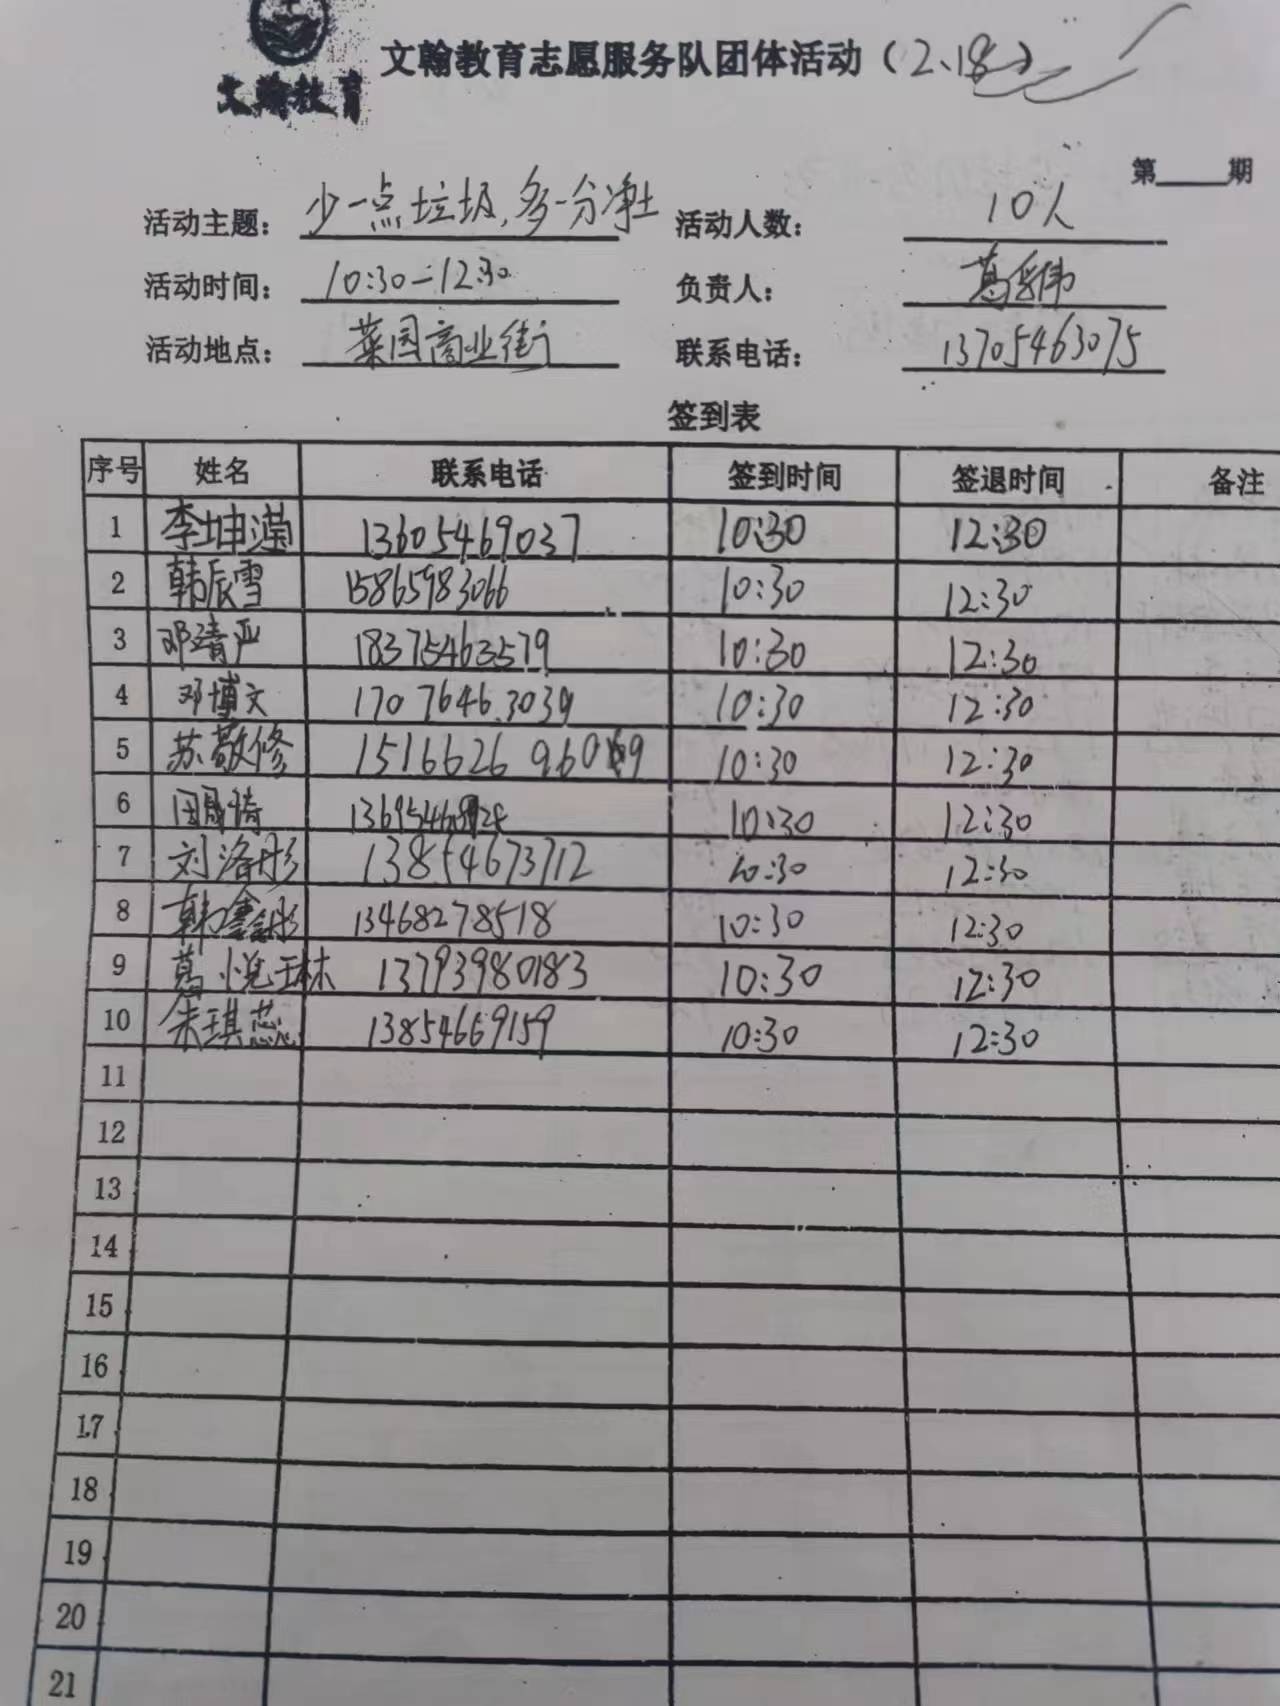 文翰教育
文翰教育志愿服务队团体活动（2.18）
第 期
活动主题： 少一点垃圾，多一分净土 活动人数： 10人
活动时间： 10:30-12:30 负责人： 葛
活动地点： 菜园商业街 联系电话： 13705463075
签到表
序号 姓名 联系电话 签到时间 签退时间 备注
1 李坤滢 13605469037 10:30 12:30
2 韩辰雪 15865983066 10:30 12:30
3 邓清严 18375463579 10:30 12:30
4 邓博文 17076463039 10:30 12:30
5 苏敬修 10:30 12:30
6 10:30 12:30
7 刘洛彤 13854673712 10:30 12:30
8 韩鑫彤 13468278518 10:30 12:30
9 葛悦琳 13793980183 10:30 12:30
10 朱琪蕊 13854669159 10:30 12:30
11
12
13
14
15
16
17
18
19
20
21